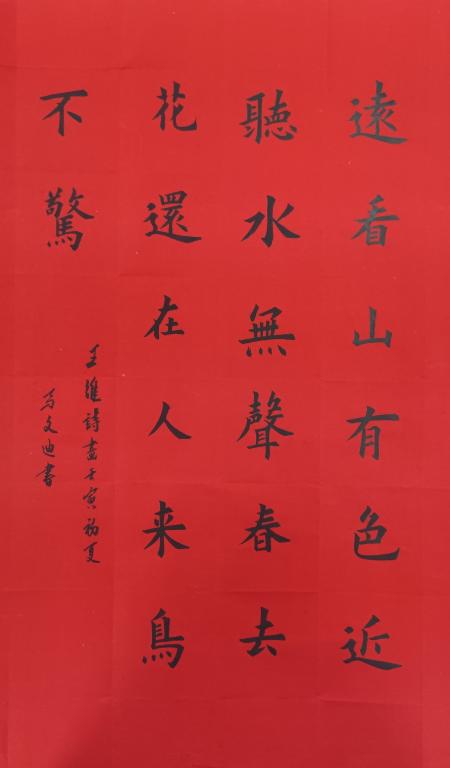 遠看山有色近
聽水無聲春去
花還在人来鳥
不驚
王維詩畫壬寅初夏
马文迪書